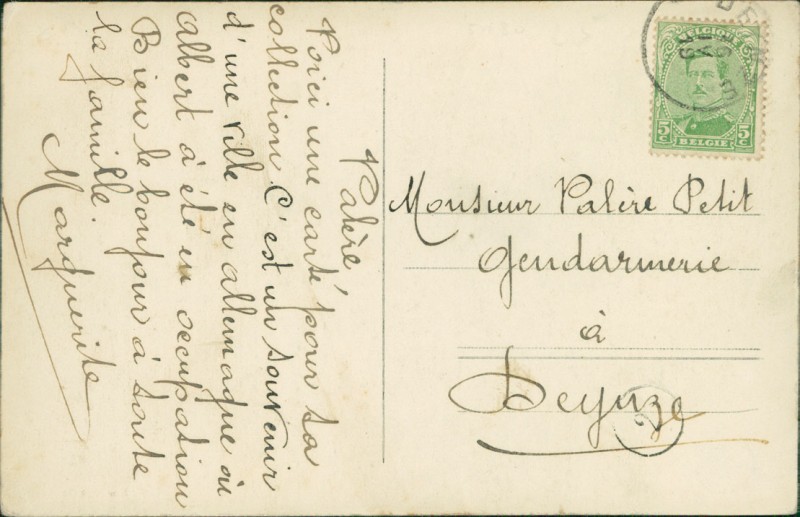 Valère
Voici une carte pour ta
collection. C'est un souvenir
d'une ville en allemagne où
albert à été en occupation
Bien le bonjour à toute
la famille.
Marguerite
BELGIQUE
5c 5c
BELGIE
Monsieur Valère Petit
Gendarmerie
à
Deynze